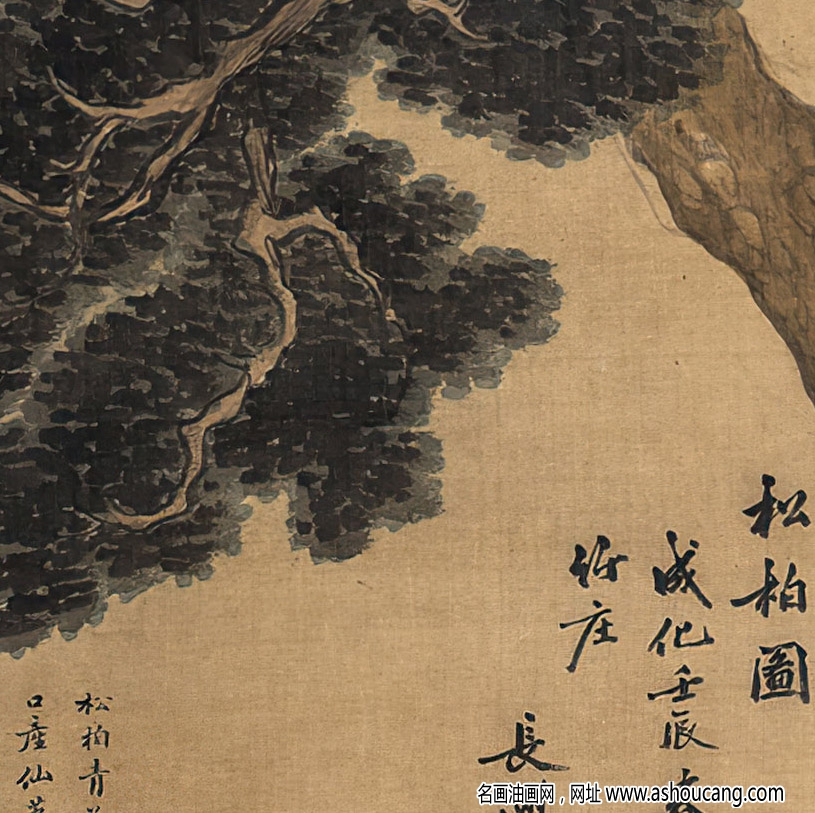 松柏圖
成化壬辰春
竹庄
長
松柏青
口產仙
名画油画网，网址 www.ashoucang.com